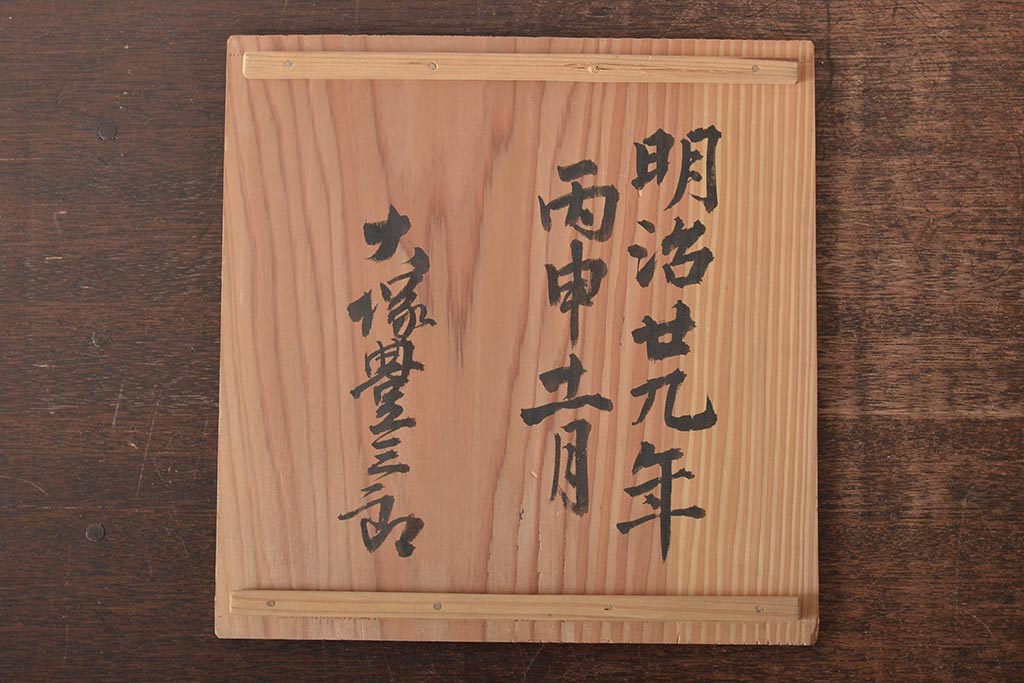 明治廿九年
丙申十一月
大塚豊三郎